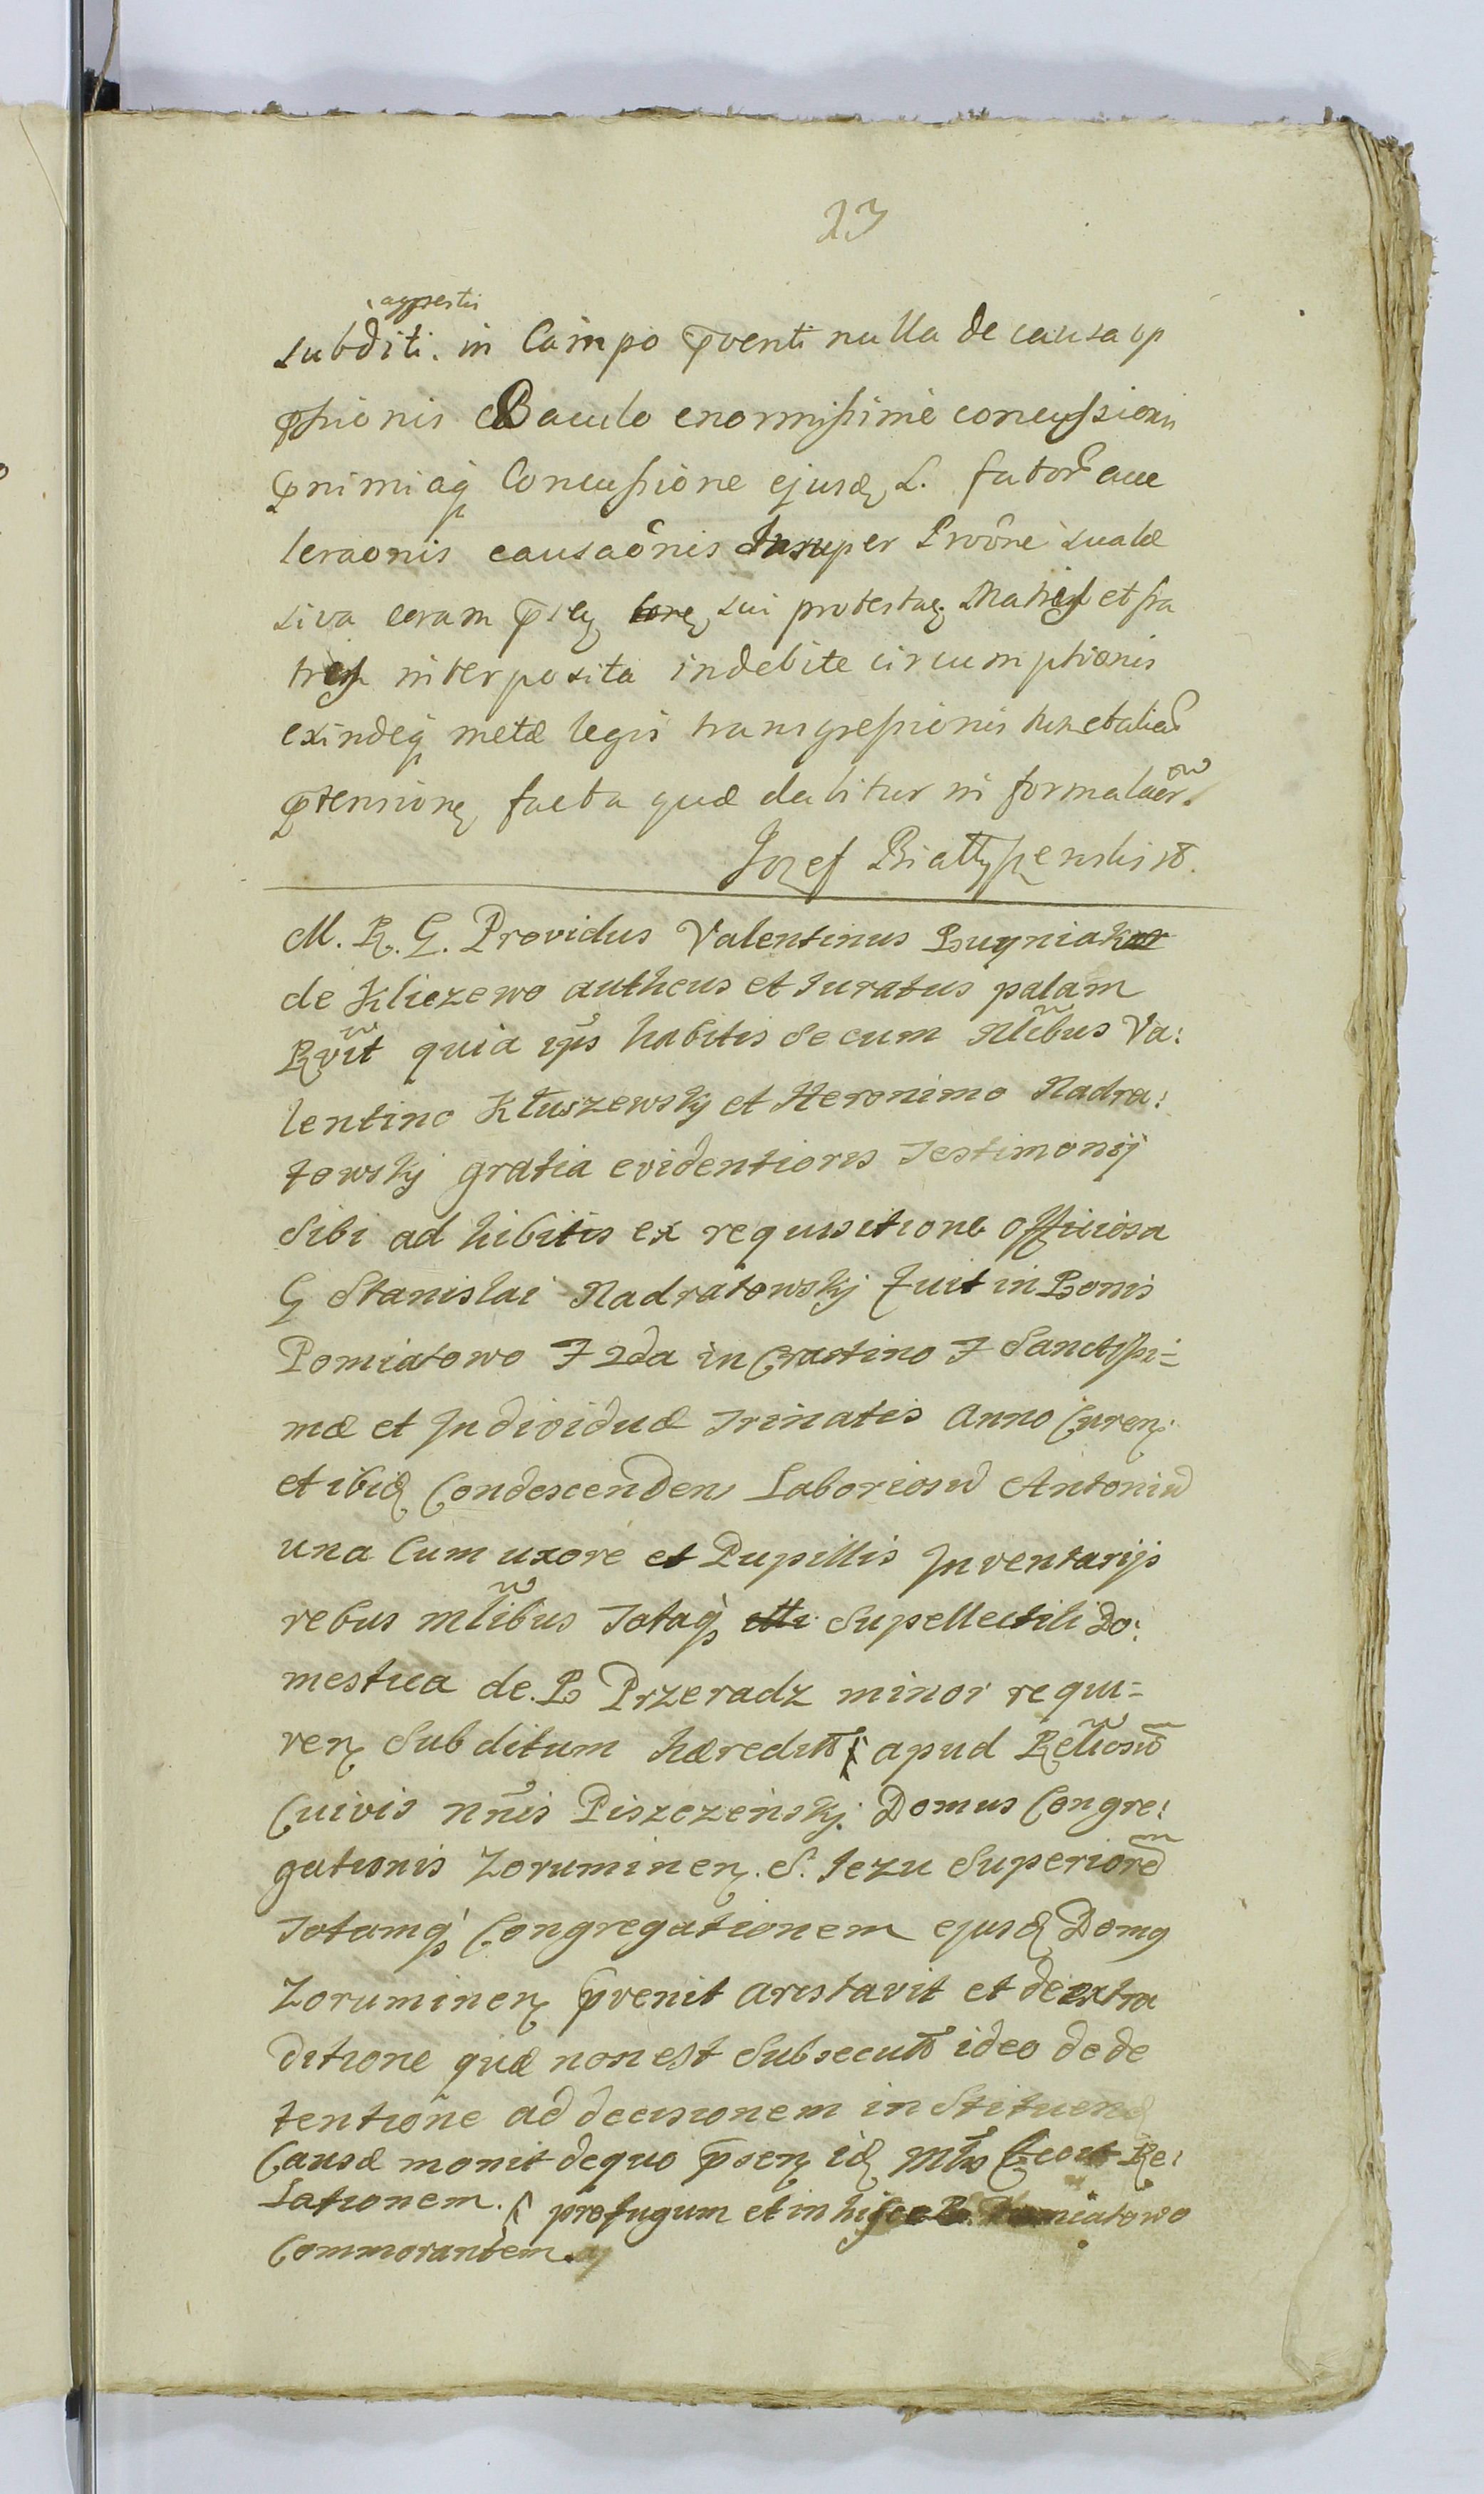 23
agrestis
subditi. in Campo pventi nulla de causa op
pssionis Baculo enormissime concussionis
pnimiaq Concussione ejusd L. fator acce
leraonis causaonis Insuper Provone suae
siva coram psen sui protestae Matris et fra
tres interposita indebite circumptionis
exindeq metæ legis transgressionis hinc et alia
ptensione facta quæ dabitur in forma laer
Jozef Białłyszenski
M. R. G. Providus Valentinus Bugniak
de Kliczewo authcus et Juratus palam
Rvit quia ips habitis secum Nlibus Va:
lentino Kłuszewskj et Heronimo Nadra:
towskj gratia evidentioris Testimonij
sibi ad hibitis ex requisitione officiosa
G Stanislai Nadratowskj fuit in Bonis
Pomiatowo F 2da in Crastino F Sanctissi=
mæ et Individuæ Trinatis Anno Curen
et ibid Condescendens Laboriosu Antoniu
una Cum uxore et Pupillis Inventarijs
rebus mlibus Totaq Supellectili Do:
mestica de. B Przeradz minor requi=
ren Subditum hæredit apud Reliosu
Cuivis nnis Piszczenskj. Domus Congre:
gationis Zoruminen. S. Jezu Superiore
Totamq Congregationem ejusd Domg
Zoruminen pvenit arestavit et de extra
ditione quæ non est Subsecuta ideo de de
tentione ad decisionem in Stituend
Causæ monit dequo psen id Mtis fecit Re:
Lationem. profugum et in hisce B. Pomiatowo
Commorantem.